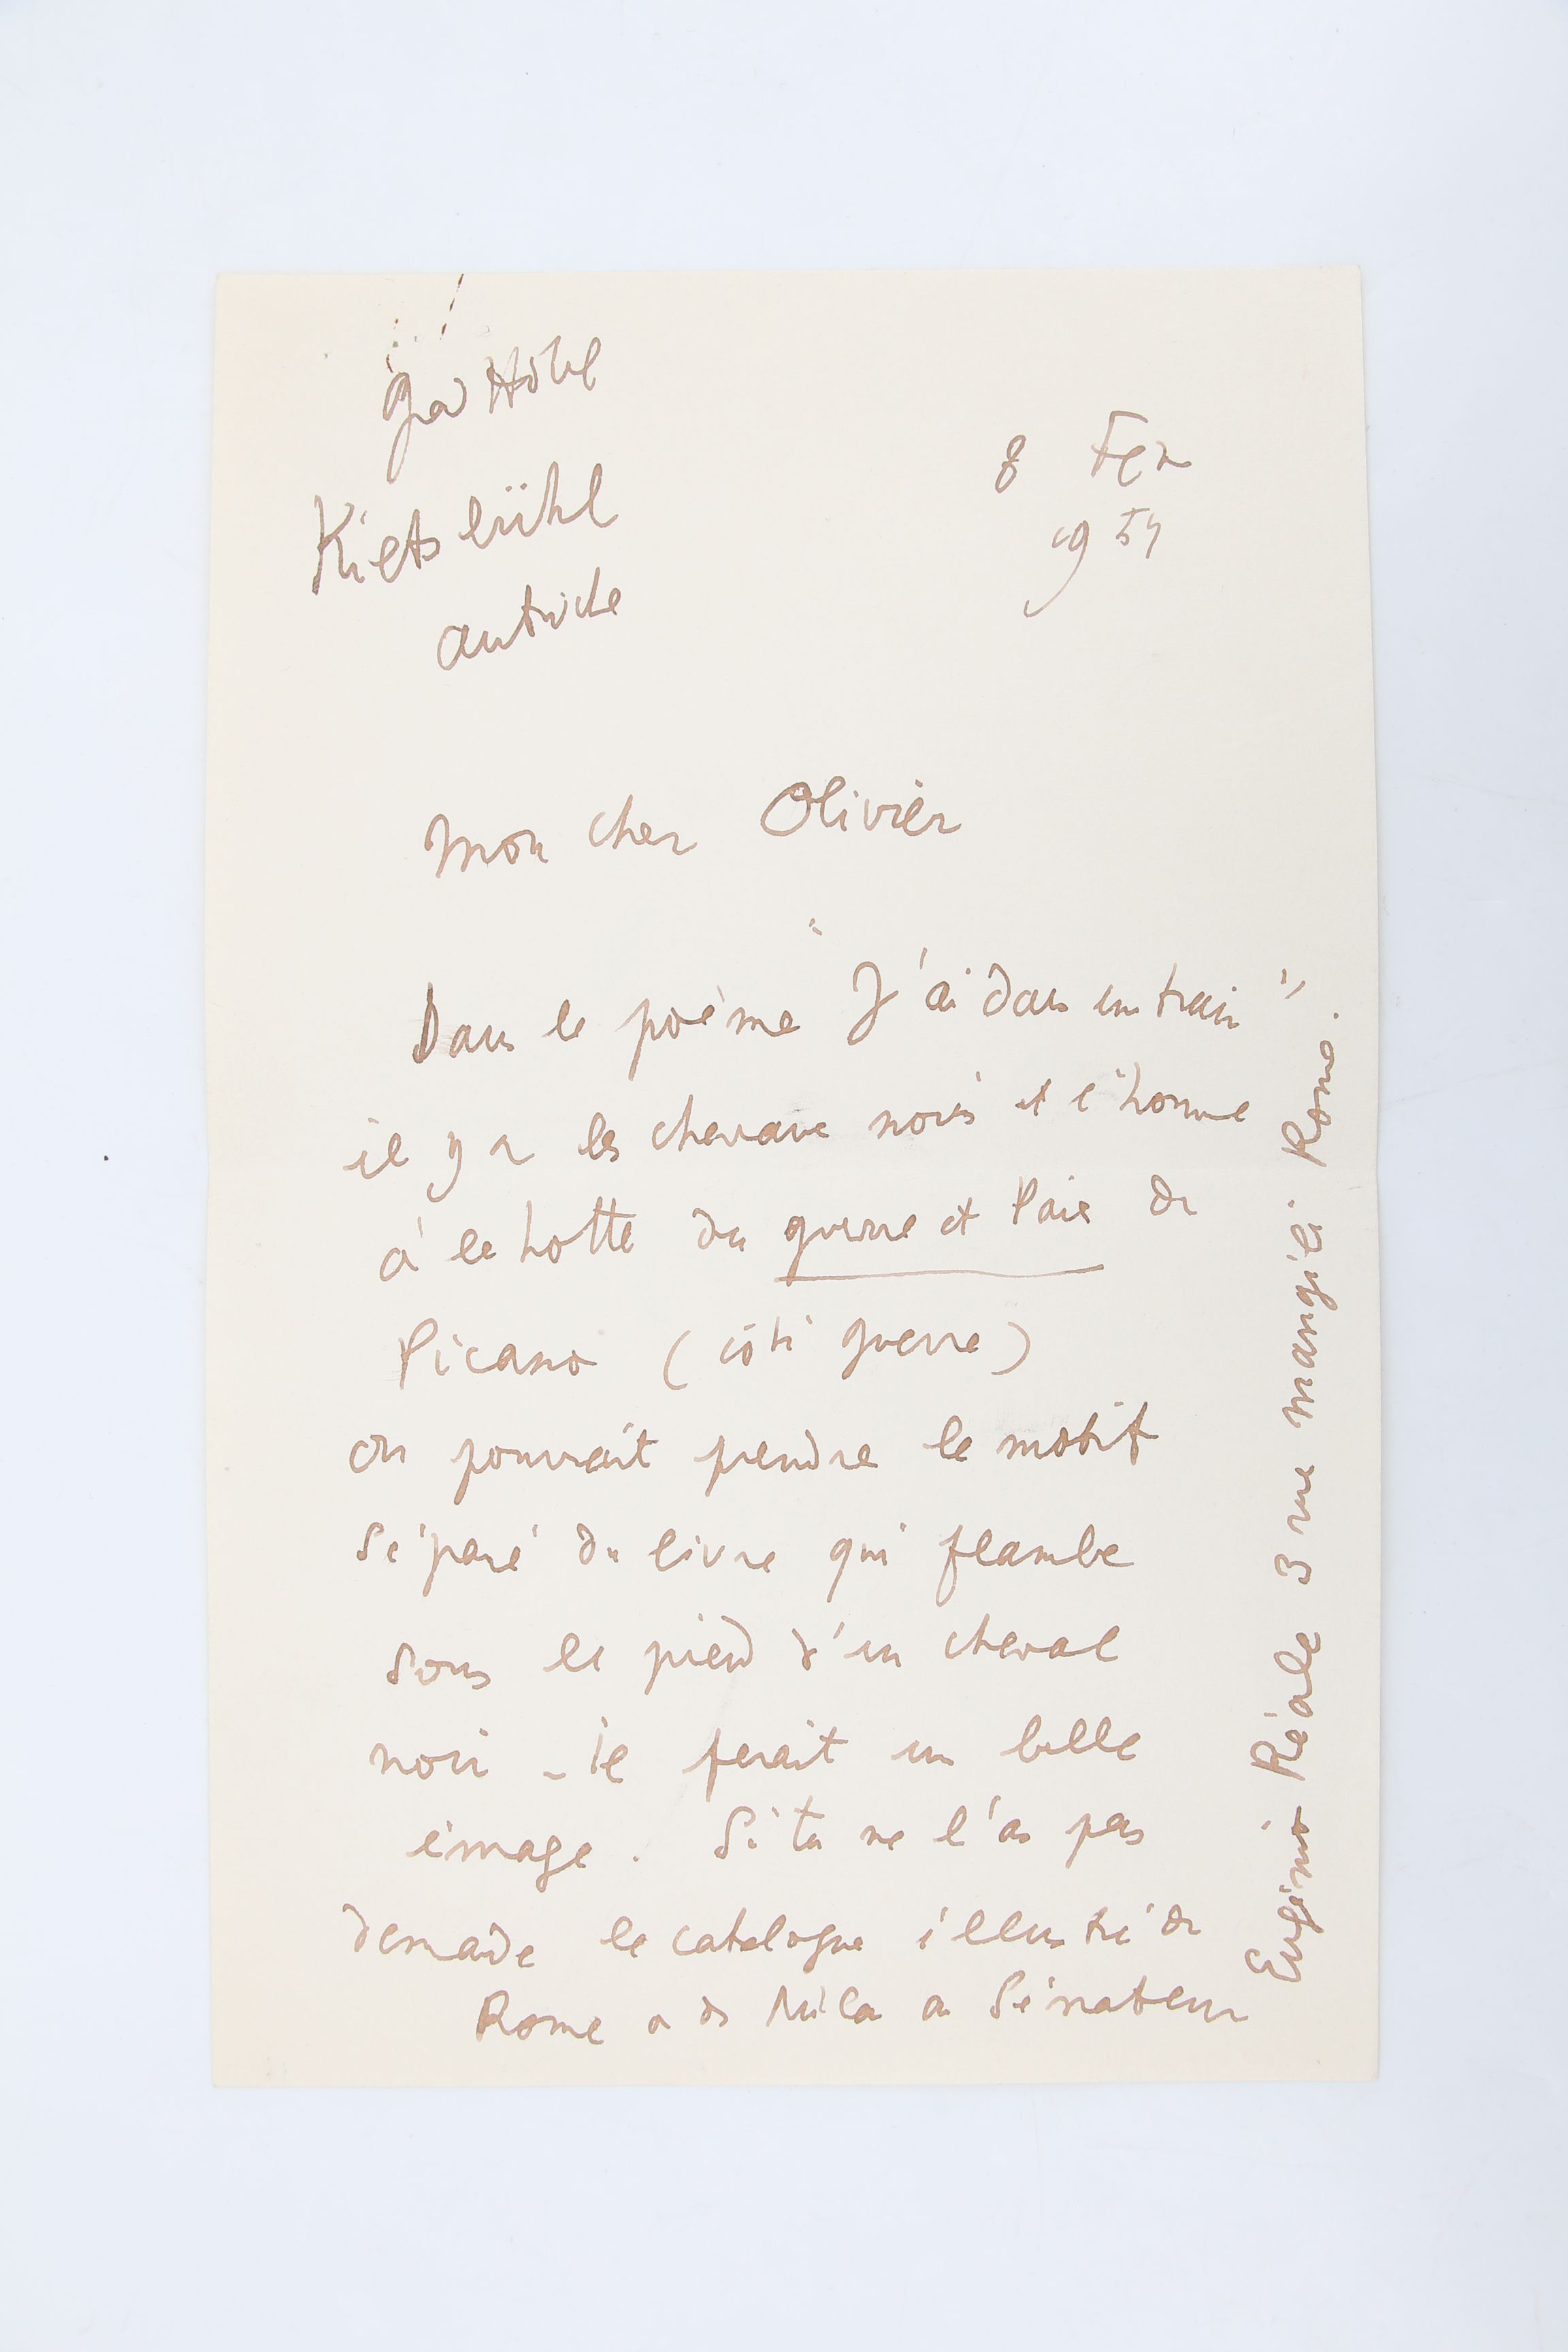 Gd Hôtel
Kietsbühl
autriche
8 Fev
1954
Mon cher Olivier
Dans le poème "J'ai dans un train"
il y a les chevaux noirs et l'homme
à la hotte du guerre et Paix de
Picasso (côté guerre)
on pourrait prendre le motif
séparé du livre qui flambe
sous le pied d'un cheval
noir - Il ferait une belle
image. Si tu ne l'as pas
demande le catalogue illustré de
Rome de Mila au Sénateur
Eugénio Réale 3 rue mangili. Rome.